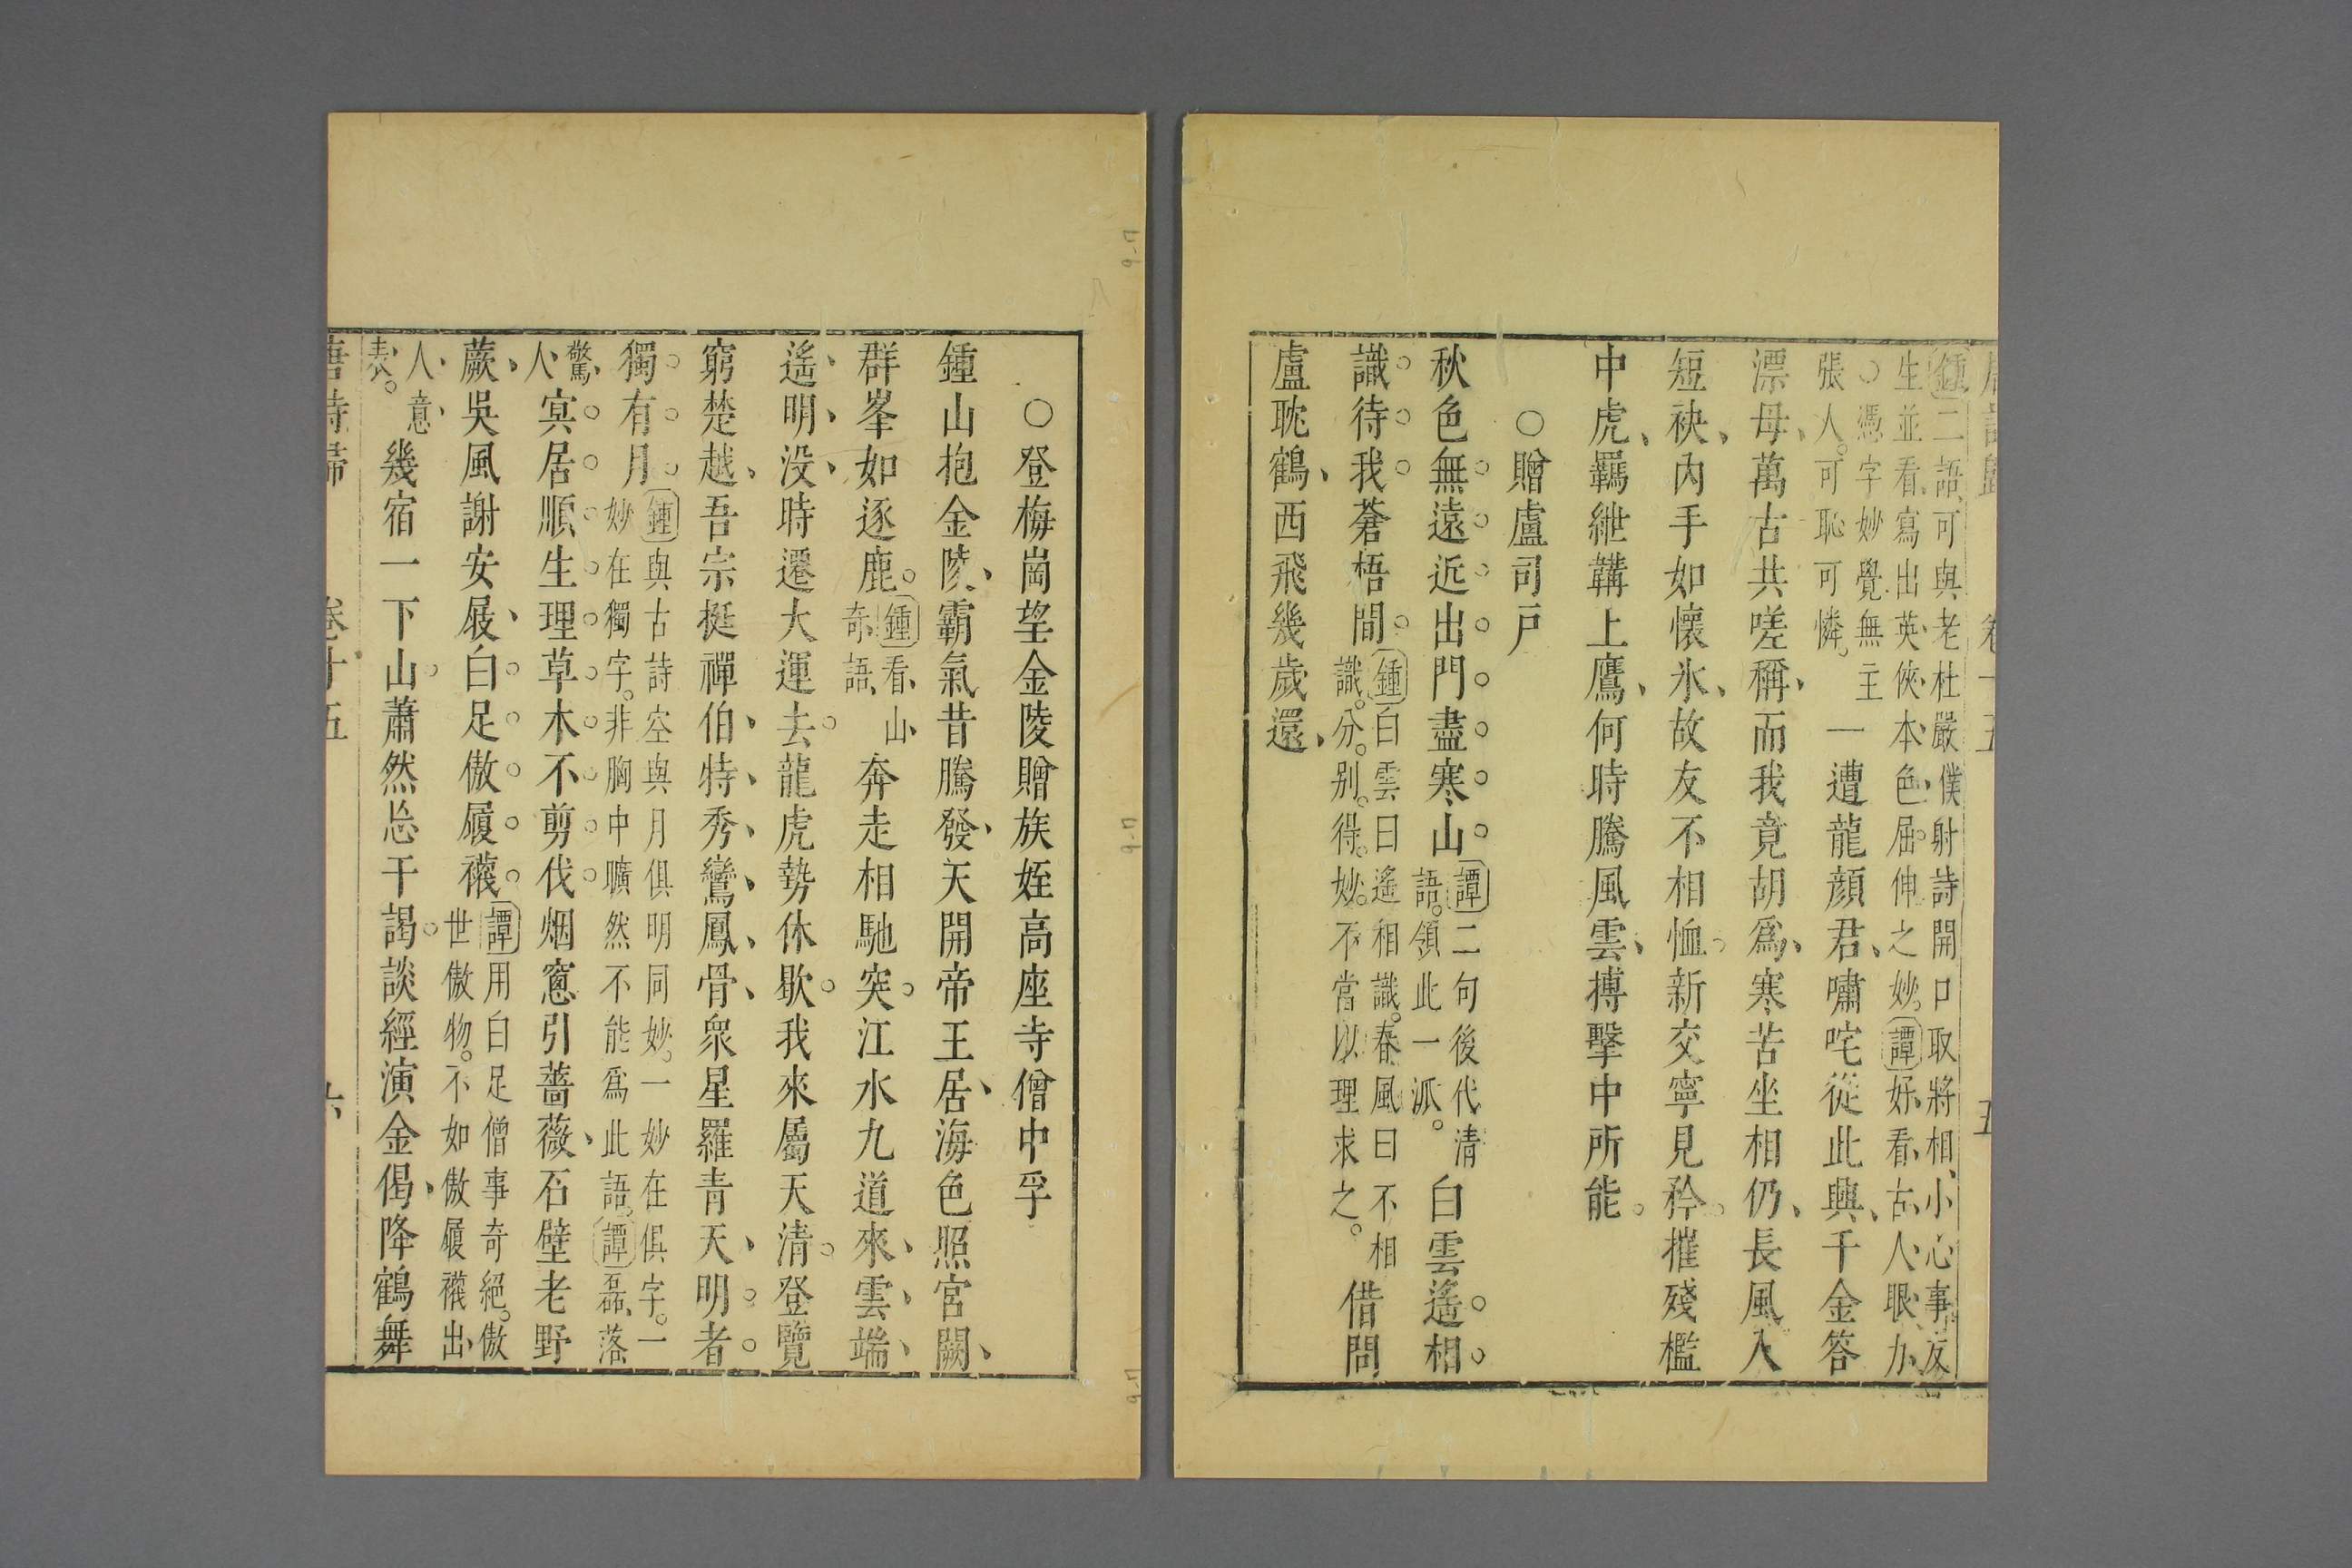 唐詩歸　卷十五　五
鍾二語、可與老杜嚴僕射詩開口取將相、小心事友
生並看、寫出英俠本色、屈伸之妙。譚好看、古人眼力、
○憑字妙覺無主
張人。可恥可憐。　一遭龍顏君、嘯咤從此興、千金答
漂母、萬古共嗟稱、而我竟胡爲、寒苦坐相仍、長風入
短袂、內手如懷氷、故友不相恤。新交寧見矜。摧殘檻
中虎、羈紲韝上鷹、何時騰風雲、搏擊中所能。
○贈盧司戸
秋色無遠近出門盡寒山。譚二句後代清
語。領此一派。　白雲遙相
識。待我蒼梧間。鍾白雲曰遙相識。春風曰不相
識。分。別。得。妙。不當以理求之。　借問
盧耽鶴、西飛幾歲還、
○登梅崗望金陵贈族姪高座寺僧中孚
鍾山抱金陵、霸氣昔騰發、天開帝王居、海色照宮闕、
群峯如逐鹿。鍾看山
奇語、　奔走相馳突。江水九道來、雲端、
遙明没、時遷大運去。龍虎勢休歇。我來屬天清。登覽
窮楚越、吾宗挺禪伯、特秀鸞鳳骨、衆星羅青天、明者。
獨有月。鍾與古詩空與月俱明同妙。一妙在俱字。一
妙在獨字。非胸中曠然不能爲此語。譚磊落
驚
人、　冥居順生理。草木不剪伐。烟窻引薔薇、石壁老野
蕨、吳風謝安屐、白足傲履襪。譚用白足僧事奇絕。傲
世傲物。不如傲履襪出
人意
表。　幾宿一下山。蕭然忘干謁。談經演金偈、降鶴舞
唐詩歸　卷十五　六